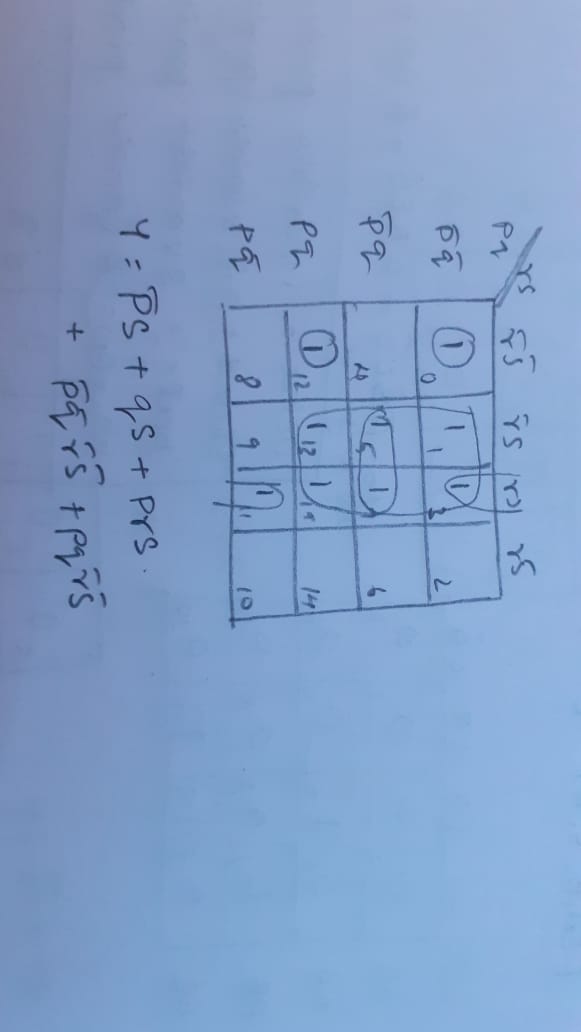 rs r̄s̄ r̄s rs rs̄
pq
p̄q̄ 1 0 1 1 1 3 2
p̄q 4 1 5 1 6
pq 1 12 1 13 1 14
pq̄ 8 9 1 11 10
Y = p̄s + qs + prs.
+ p̄q̄ r̄s̄ + pq r̄s̄